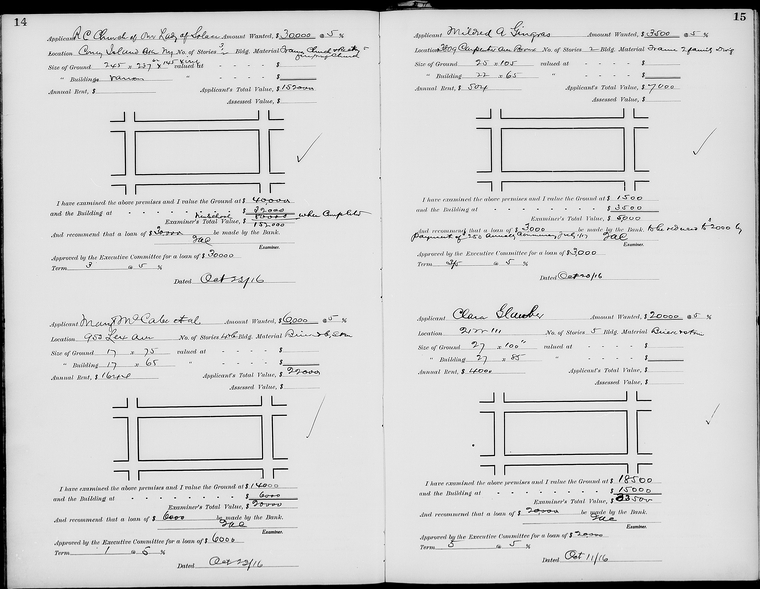 14
Applicant R C Church of Our Lady of Solace Amount Wanted, $ 30000 @ 5 %
Location Coney Island Ave No. of Stories 3 Bldg. Material Frame Church
Size of Ground 245 x 237 x 145 valued at - - - - $
" Buildings Various " - - - - $
Annual Rent, $ Applicant's Total Value, $ 152000
Assessed Value, $
I have examined the above premises and I value the Ground at $ 40000
and the Building at - - - - - - - - - $
Examiner's Total Value, $ 152000 when Completed
And recommend that a loan of $ 30000 be made by the Bank.
Examiner.
Approved by the Executive Committee for a loan of $ 30000
Term 3 @ 5 %
Dated Oct 23/16
Applicant Mary McCabe et al Amount Wanted, $ 6000 @ 5 %
Location 953 Lex Ave No. of Stories Bldg. Material
Size of Ground 17 x 75 valued at - - - - $
" Building 17 x 65 " - - - - $
Annual Rent, $ Applicant's Total Value, $ 22000
Assessed Value, $
I have examined the above premises and I value the Ground at $ 14000
and the Building at - - - - - - - - - $ 6000
Examiner's Total Value, $ 20000
And recommend that a loan of $ 6000 be made by the Bank.
Examiner.
Approved by the Executive Committee for a loan of $ 6000
Term 1 @ 5 %
Dated Oct 23/16
15
Applicant Mildred A Gingras Amount Wanted, $ 3500 @ 5 %
Location Carpenter Ave Bronx No. of Stories 2 Bldg. Material Frame 2 family Dwg
Size of Ground 25 x 105 valued at - - - - $
" Building 22 x 65 " - - - - $
Annual Rent, $ 504 Applicant's Total Value, $ 7000
Assessed Value, $
I have examined the above premises and I value the Ground at $ 1500
and the Building at - - - - - - - - - $ 3500
Examiner's Total Value, $ 5000
And recommend that a loan of $ 3000 be made by the Bank. to be reduced to $2000 by
payment of $250 annually commencing July
Examiner.
Approved by the Executive Committee for a loan of $ 3000
Term @ 5 %
Dated Oct 23/16
Applicant Clara Amount Wanted, $ 20000 @ 5 %
Location 21 W 111 No. of Stories 5 Bldg. Material Brick
Size of Ground 27 x 100" valued at - - - - $
" Building 27 x 85 " - - - - $
Annual Rent, $ 4000 Applicant's Total Value, $
Assessed Value, $
I have examined the above premises and I value the Ground at $ 18500
and the Building at - - - - - - - - - $ 15000
Examiner's Total Value, $ 33500
And recommend that a loan of $ 20000 be made by the Bank.
Examiner.
Approved by the Executive Committee for a loan of $ 20000
Term 5 @ 5 %
Dated Oct 11/16